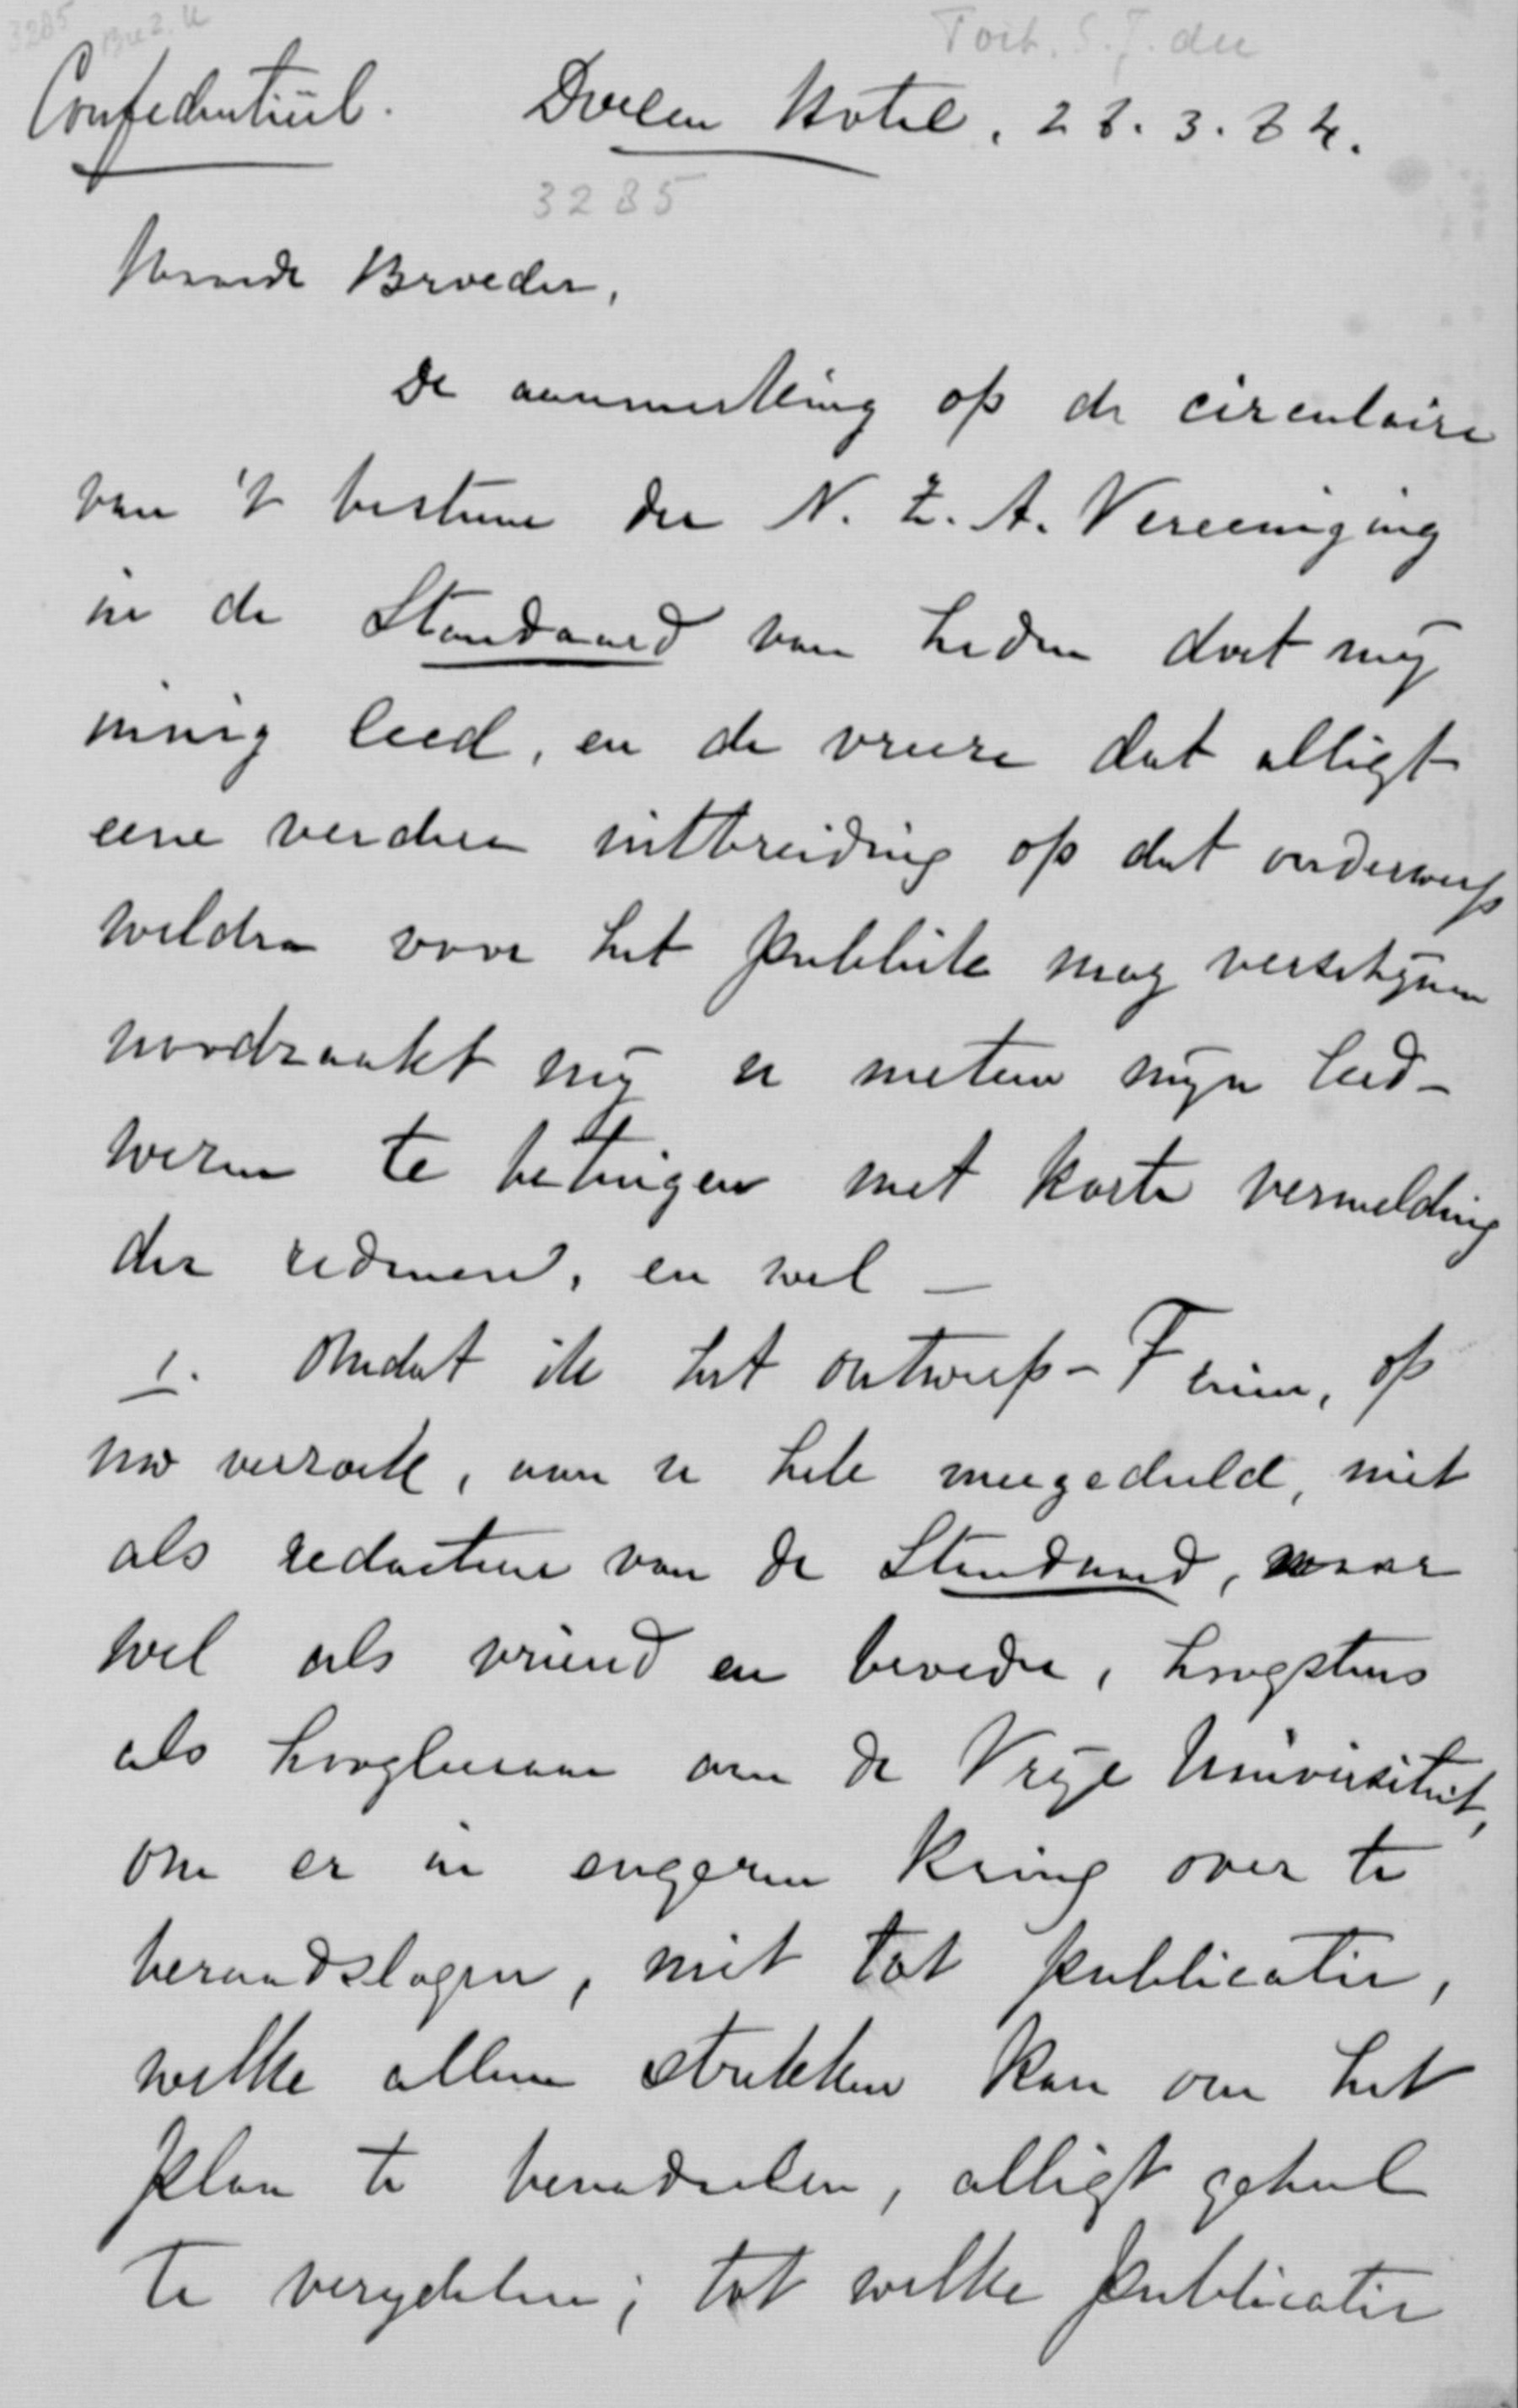 3285 Bre 2. u
Toit. S. J. du
Confidentieel. Doelen Hotel, 28.3.84.
3285
Waarde Broeder,
De aanmerking op de circulaire
van 't bestuur der N. Z. A. Vereeniging
in de Standaard van heden doet mij
innig leed, en de vreeze dat alligt
eene verdere uitbreiding op dat onderwerp
weldra voor het publiek mag verschijnen
noodzaakt mij u meteen mijn leed-
wezen te betuigen met korte vermelding
der redenen, en wel —
1. Omdat ik het ontwerp-, op
uw verzoek, aan u heb meegedeeld, niet
als redacteur van de Standaard, maar
wel als vriend en broeder, hoogstens
als hoogleeraar aan de Vrije Universiteit,
om er in engeren kring over te
beraadslagen, niet tot publicatie,
welke alleen strekken kan om het
plan te benadeelen, alligt geheel
te verijdelen; tot welke publicatie